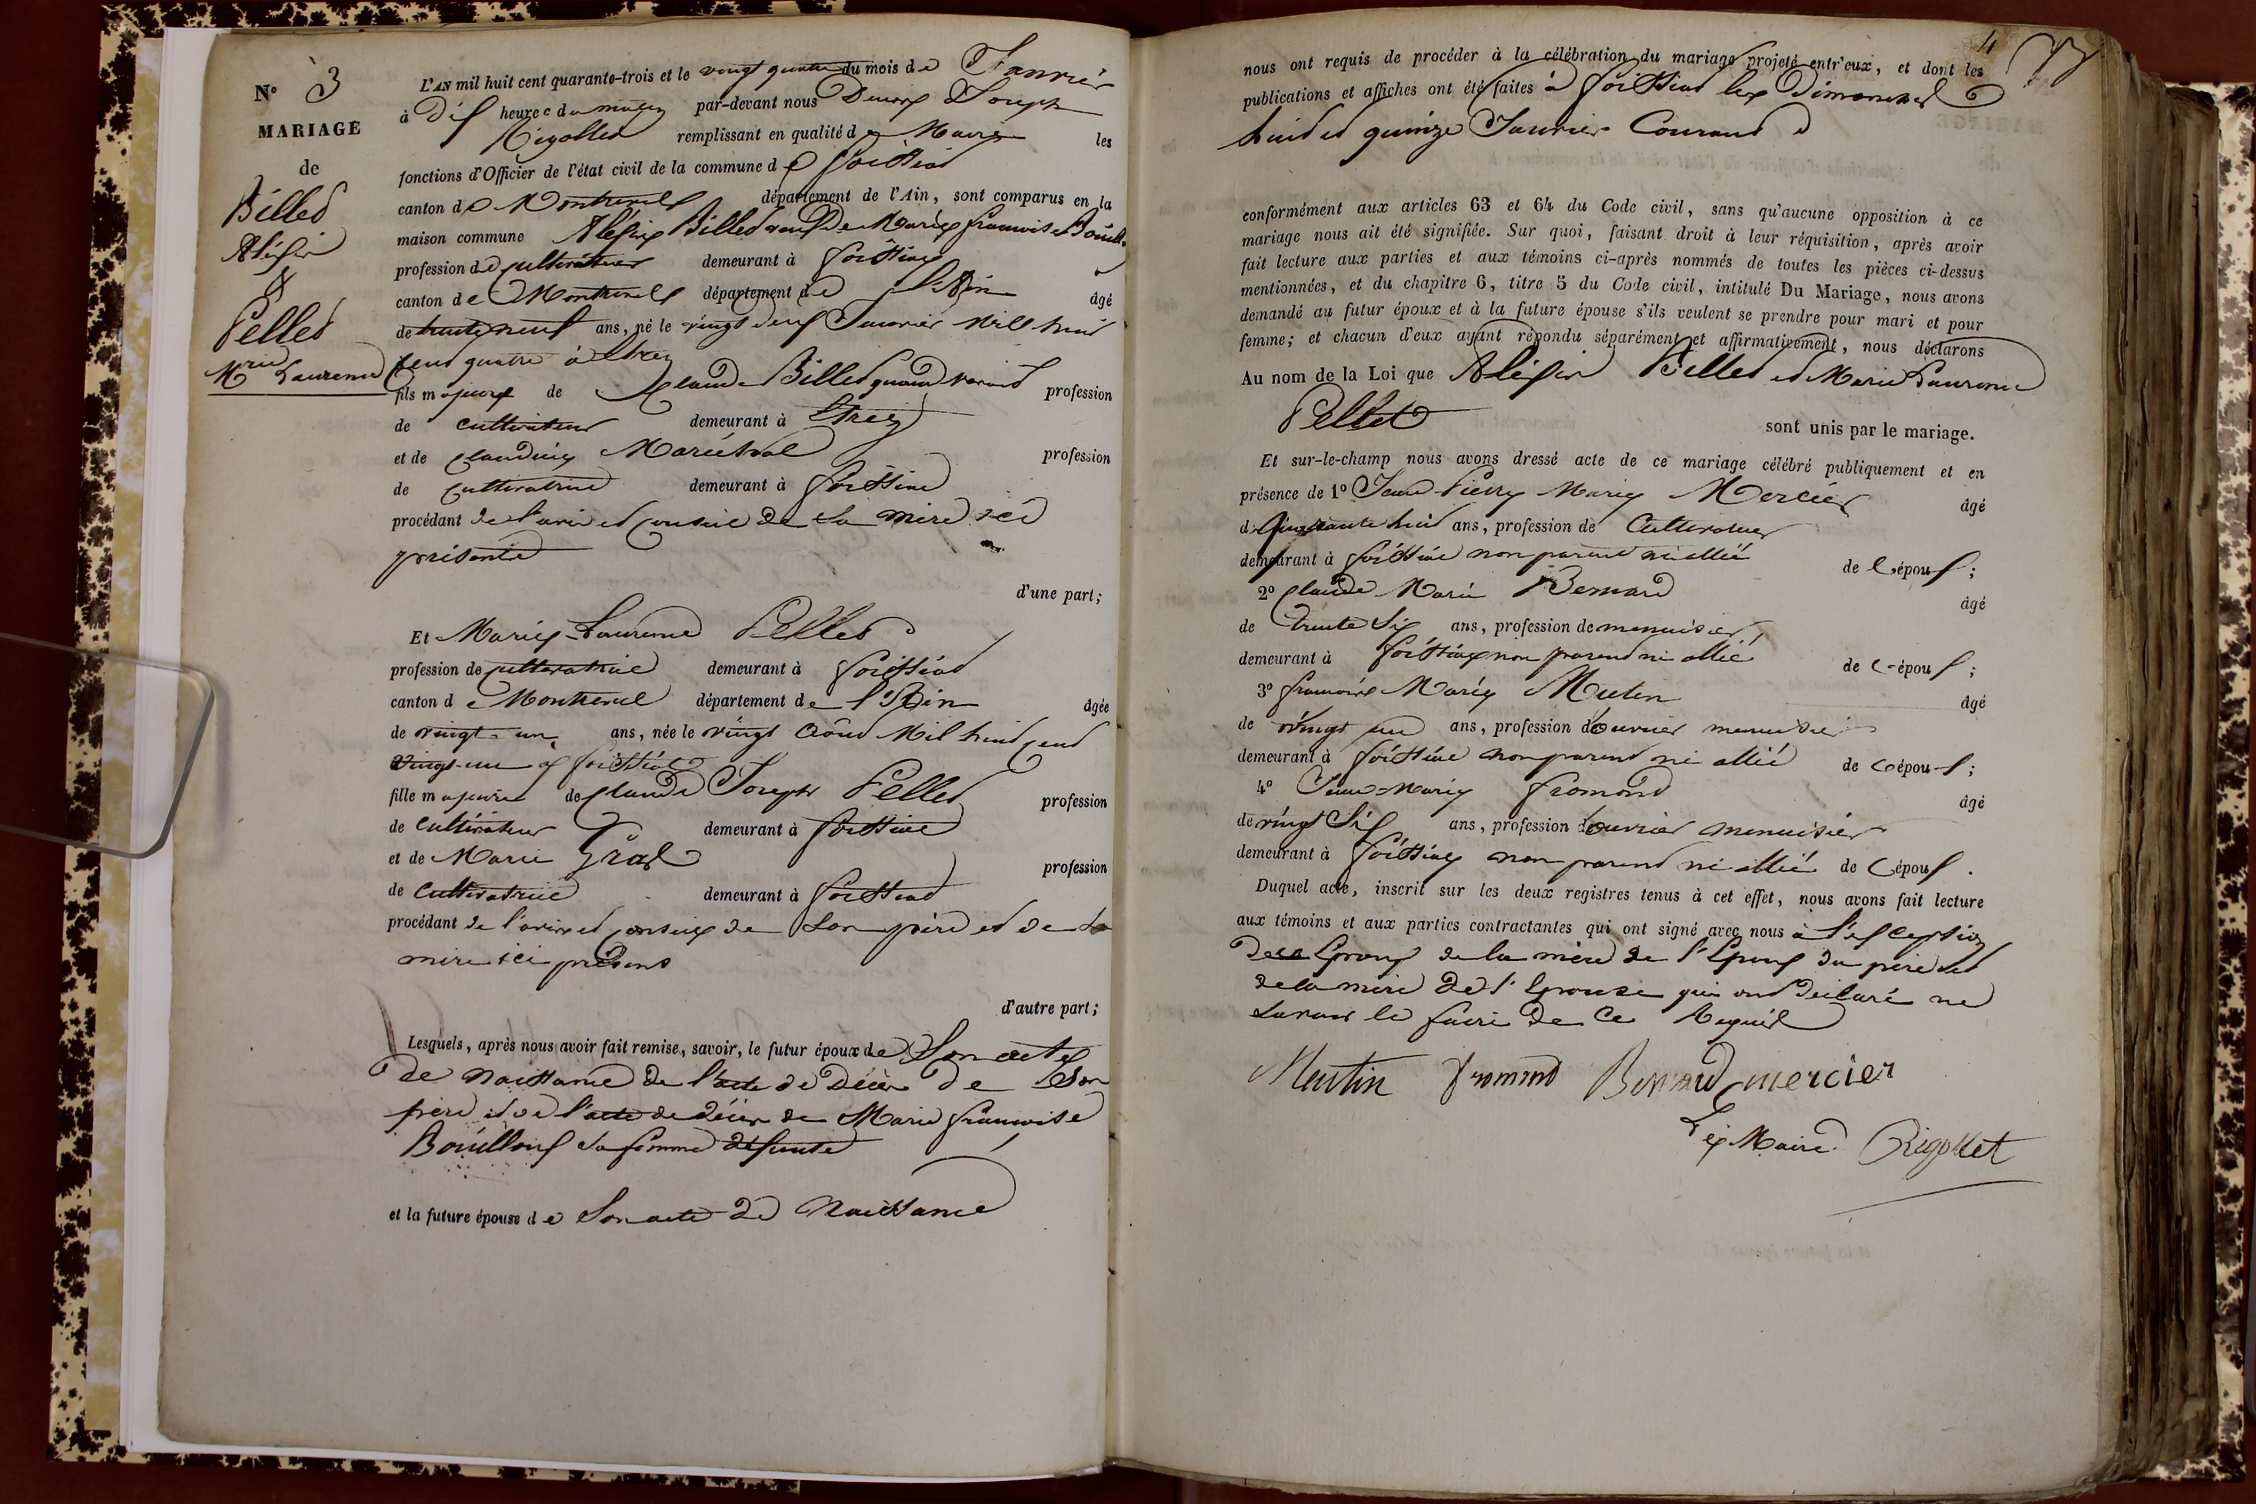 N° 3
MARIAGE
de
Billet
Aléxis
&
Pellet
Mrie Laurence
L'AN mil huit cent quarante-trois et le vingt quatre du mois de Janvier
à Dix heures du matin par-devant nous Denis Joseph
Rigollet remplissant en qualité de Maire les
fonctions d'Officier de l'état civil de la commune de foissiat
canton de Montrevel département de l'Ain, sont comparus en la
maison commune Aléxis Billet veuf De Marie francoise Bouillou
profession de cultivateur demeurant à foissiat
canton de Montrevel département de l'Ain âgé
de trente neuf ans, né le vingt deux Janvier Mill huit
cent quatre à Etrez
fils majeur de Claude Billet quand vivait profession
de cultivateur demeurant à Etrez
et de claudine Maréchal profession
de cultivatrice demeurant à foissiat
procédant de l'avis et conseil de sa mere ici
présente
d'une part;
Et Marie Laurence Pellet
profession de cultivatrice demeurant à foissiat
canton de Montrevel département de l'Ain âgée
de vingt-un ans, née le vingt Août Mil huit cent
vingt-un à foissiat
fille majeure de Claude Joseph Pellet profession
de cultivateur demeurant à foissiat
et de Marie profession
de cultivatrice demeurant à foissiat
procédant de l'avis et conseil de son père et de sa
mère ici présens
d'autre part;
Lesquels, après nous avoir fait remise, savoir, le futur époux de Son acte
de Naissance de l'acte de Décès de son
père et de l'acte de décès de Marie francoise
Bouilloux sa femme défunte
et la future épouse de Son acte de Naissance
4
nous ont requis de procéder à la célébration du mariage projeté entr'eux, et dont les
publications et affiches ont été faites à foissiat les Dimanches
huit et quinze Janvier Courant
conformément aux articles 63 et 64 du Code civil, sans qu'aucune opposition à ce
mariage nous ait été signifiée. Sur quoi, faisant droit à leur réquisition, après avoir
fait lecture aux parties et aux témoins ci-après nommés de toutes les pièces ci-dessus
mentionnées, et du chapitre 6, titre 5 du Code civil, intitulé Du Mariage, nous avons
demandé au futur époux et à la future épouse s'ils veulent se prendre pour mari et pour
femme; et chacun d'eux ayant répondu séparément et affirmativement, nous déclarons
Au nom de la Loi que Aléxis Billet et Marie Laurence
Pellet
sont unis par le mariage.
Et sur-le-champ nous avons dressé acte de ce mariage célébré publiquement et en
présence de 1° Jean Pierre Marie Mercier âgé
de huit ans, profession de Cultivateur
demeurant à foissiat non parent ni allié de l'époux;
2° Claude Marie Bernard âgé
de trente Six ans, profession de menuisier
demeurant à foissiat non parent ni allié de l'époux;
3° francois Marie Meulin âgé
de vingt un ans, profession d'ouvrier menuisier
demeurant à foissiat non parent ni allié de l'époux;
4° Jean-Marie fromond âgé
de vingt Six ans, profession d'ouvrier menuisier
demeurant à foissiat non parent ni allié de l'époux.
Duquel acte, inscrit sur les deux registres tenus à cet effet, nous avons fait lecture
aux témoins et aux parties contractantes qui ont signé avec nous à l'exception
des Epoux de la mère de l'Epoux du père et
de la mère de l'Epouse qui ont déclaré ne
savoir le faire de ce Requis
Meulin fromond Bernard mercier
Le Maire Rigollet